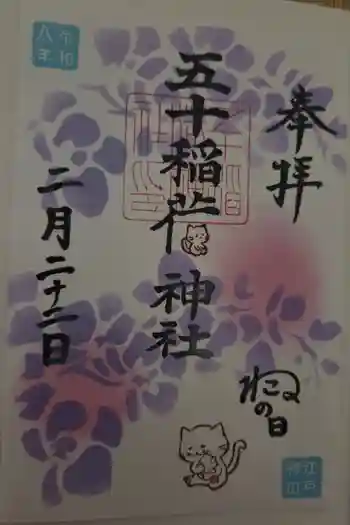 奉拝
五十稲荷神社
ねこの日
二月二十二日
令和
八年
江戸
神田